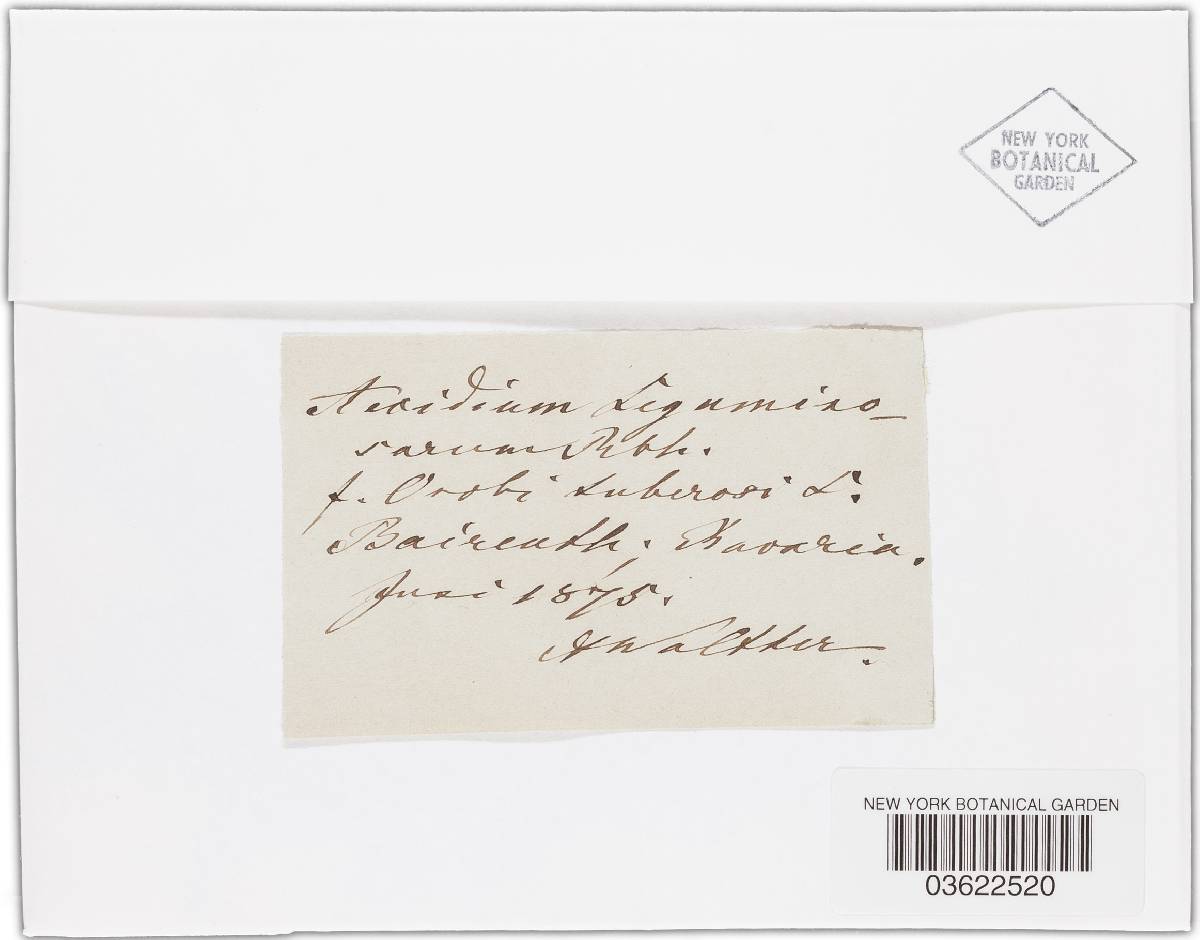 NEW YORK
BOTANICAL
GARDEN
Aecidium Legumino-
sarum Rbh.
f. Orobi tuberosi L.
Baireuth, Bavaria.
Juni 1875.
A Walther.
NEW YORK BOTANICAL GARDEN
03622520